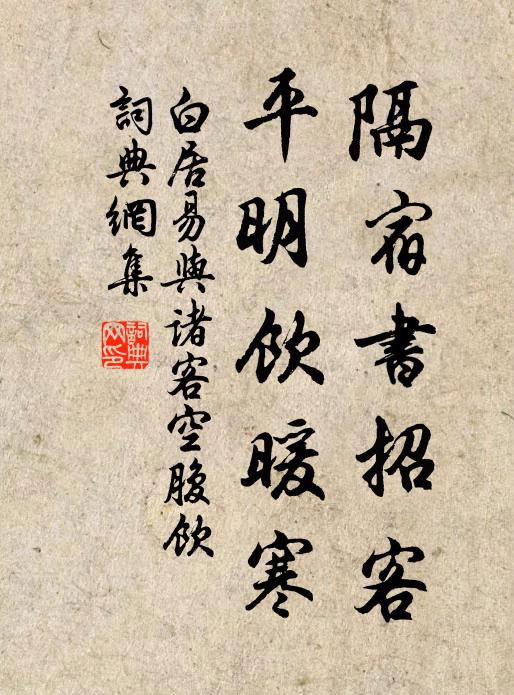 隔宿書招客
平明飲暖寒
白居易與諸客空腹飲
詞典網集
詞典网印